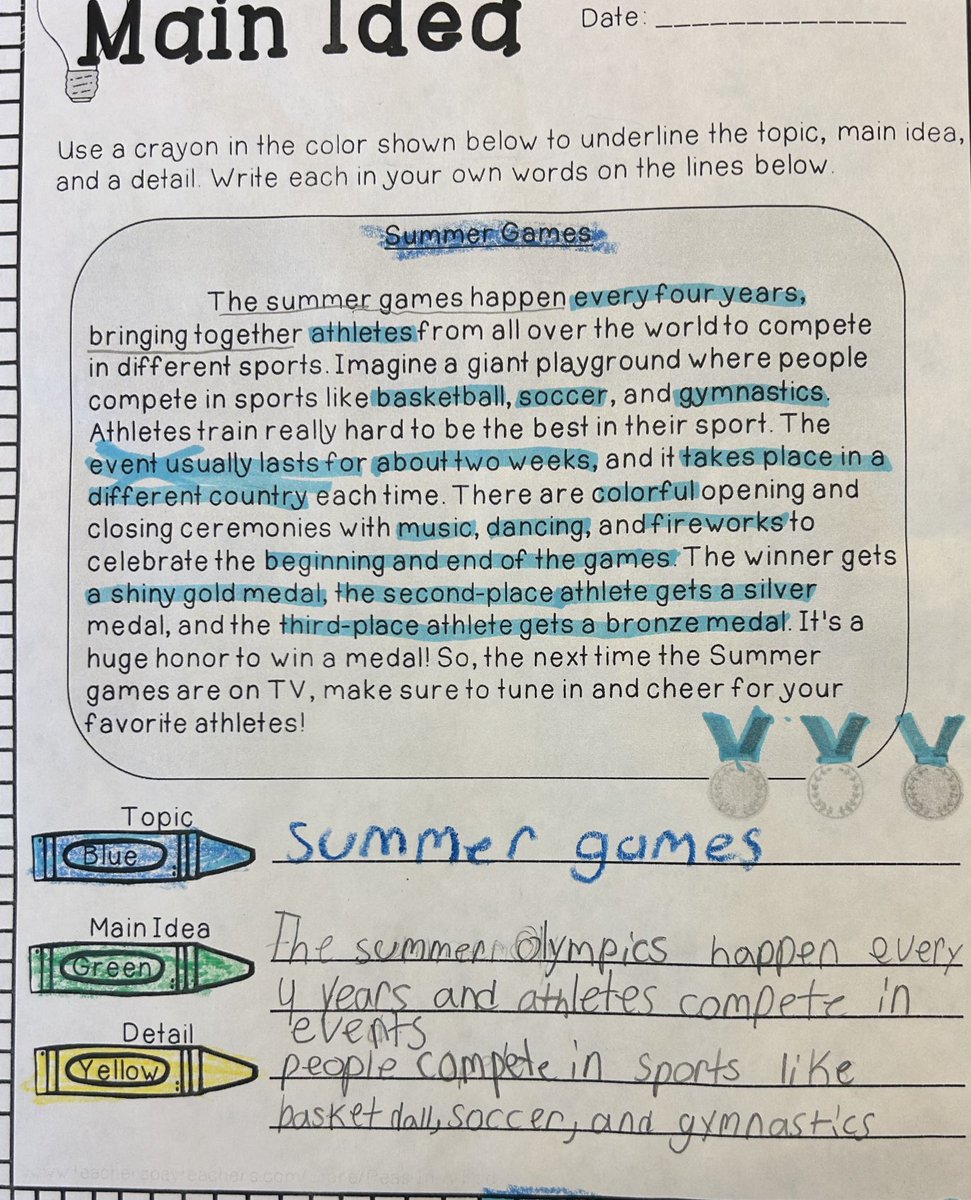 Main Idea
Date:
Use a crayon in the color shown below to underline the topic, main idea,
and a detail. Write each in your own words on the lines below.
Summer Games
The summer games happen every four years,
bringing together athletes from all over the world to compete
in different sports. Imagine a giant playground where people
compete in sports like basketball, soccer, and gymnastics.
Athletes train really hard to be the best in their sport. The
event usually lasts for about two weeks, and it takes place in a
different country each time. There are colorful opening and
closing ceremonies with music, dancing, and fireworks to
celebrate the beginning and end of the games. The winner gets
a shiny gold medal, the second-place athlete gets a silver
medal, and the third-place athlete gets a bronze medal. It's a
huge honor to win a medal! So, the next time the Summer
games are on TV, make sure to tune in and cheer for your
favorite athletes!
Topic
Blue
summer games
Main Idea
Green
The summer Olympics happen every
4 years and athletes compete in
events
Detail
Yellow
people compete in sports like
basketdall, soccer, and gymnastics